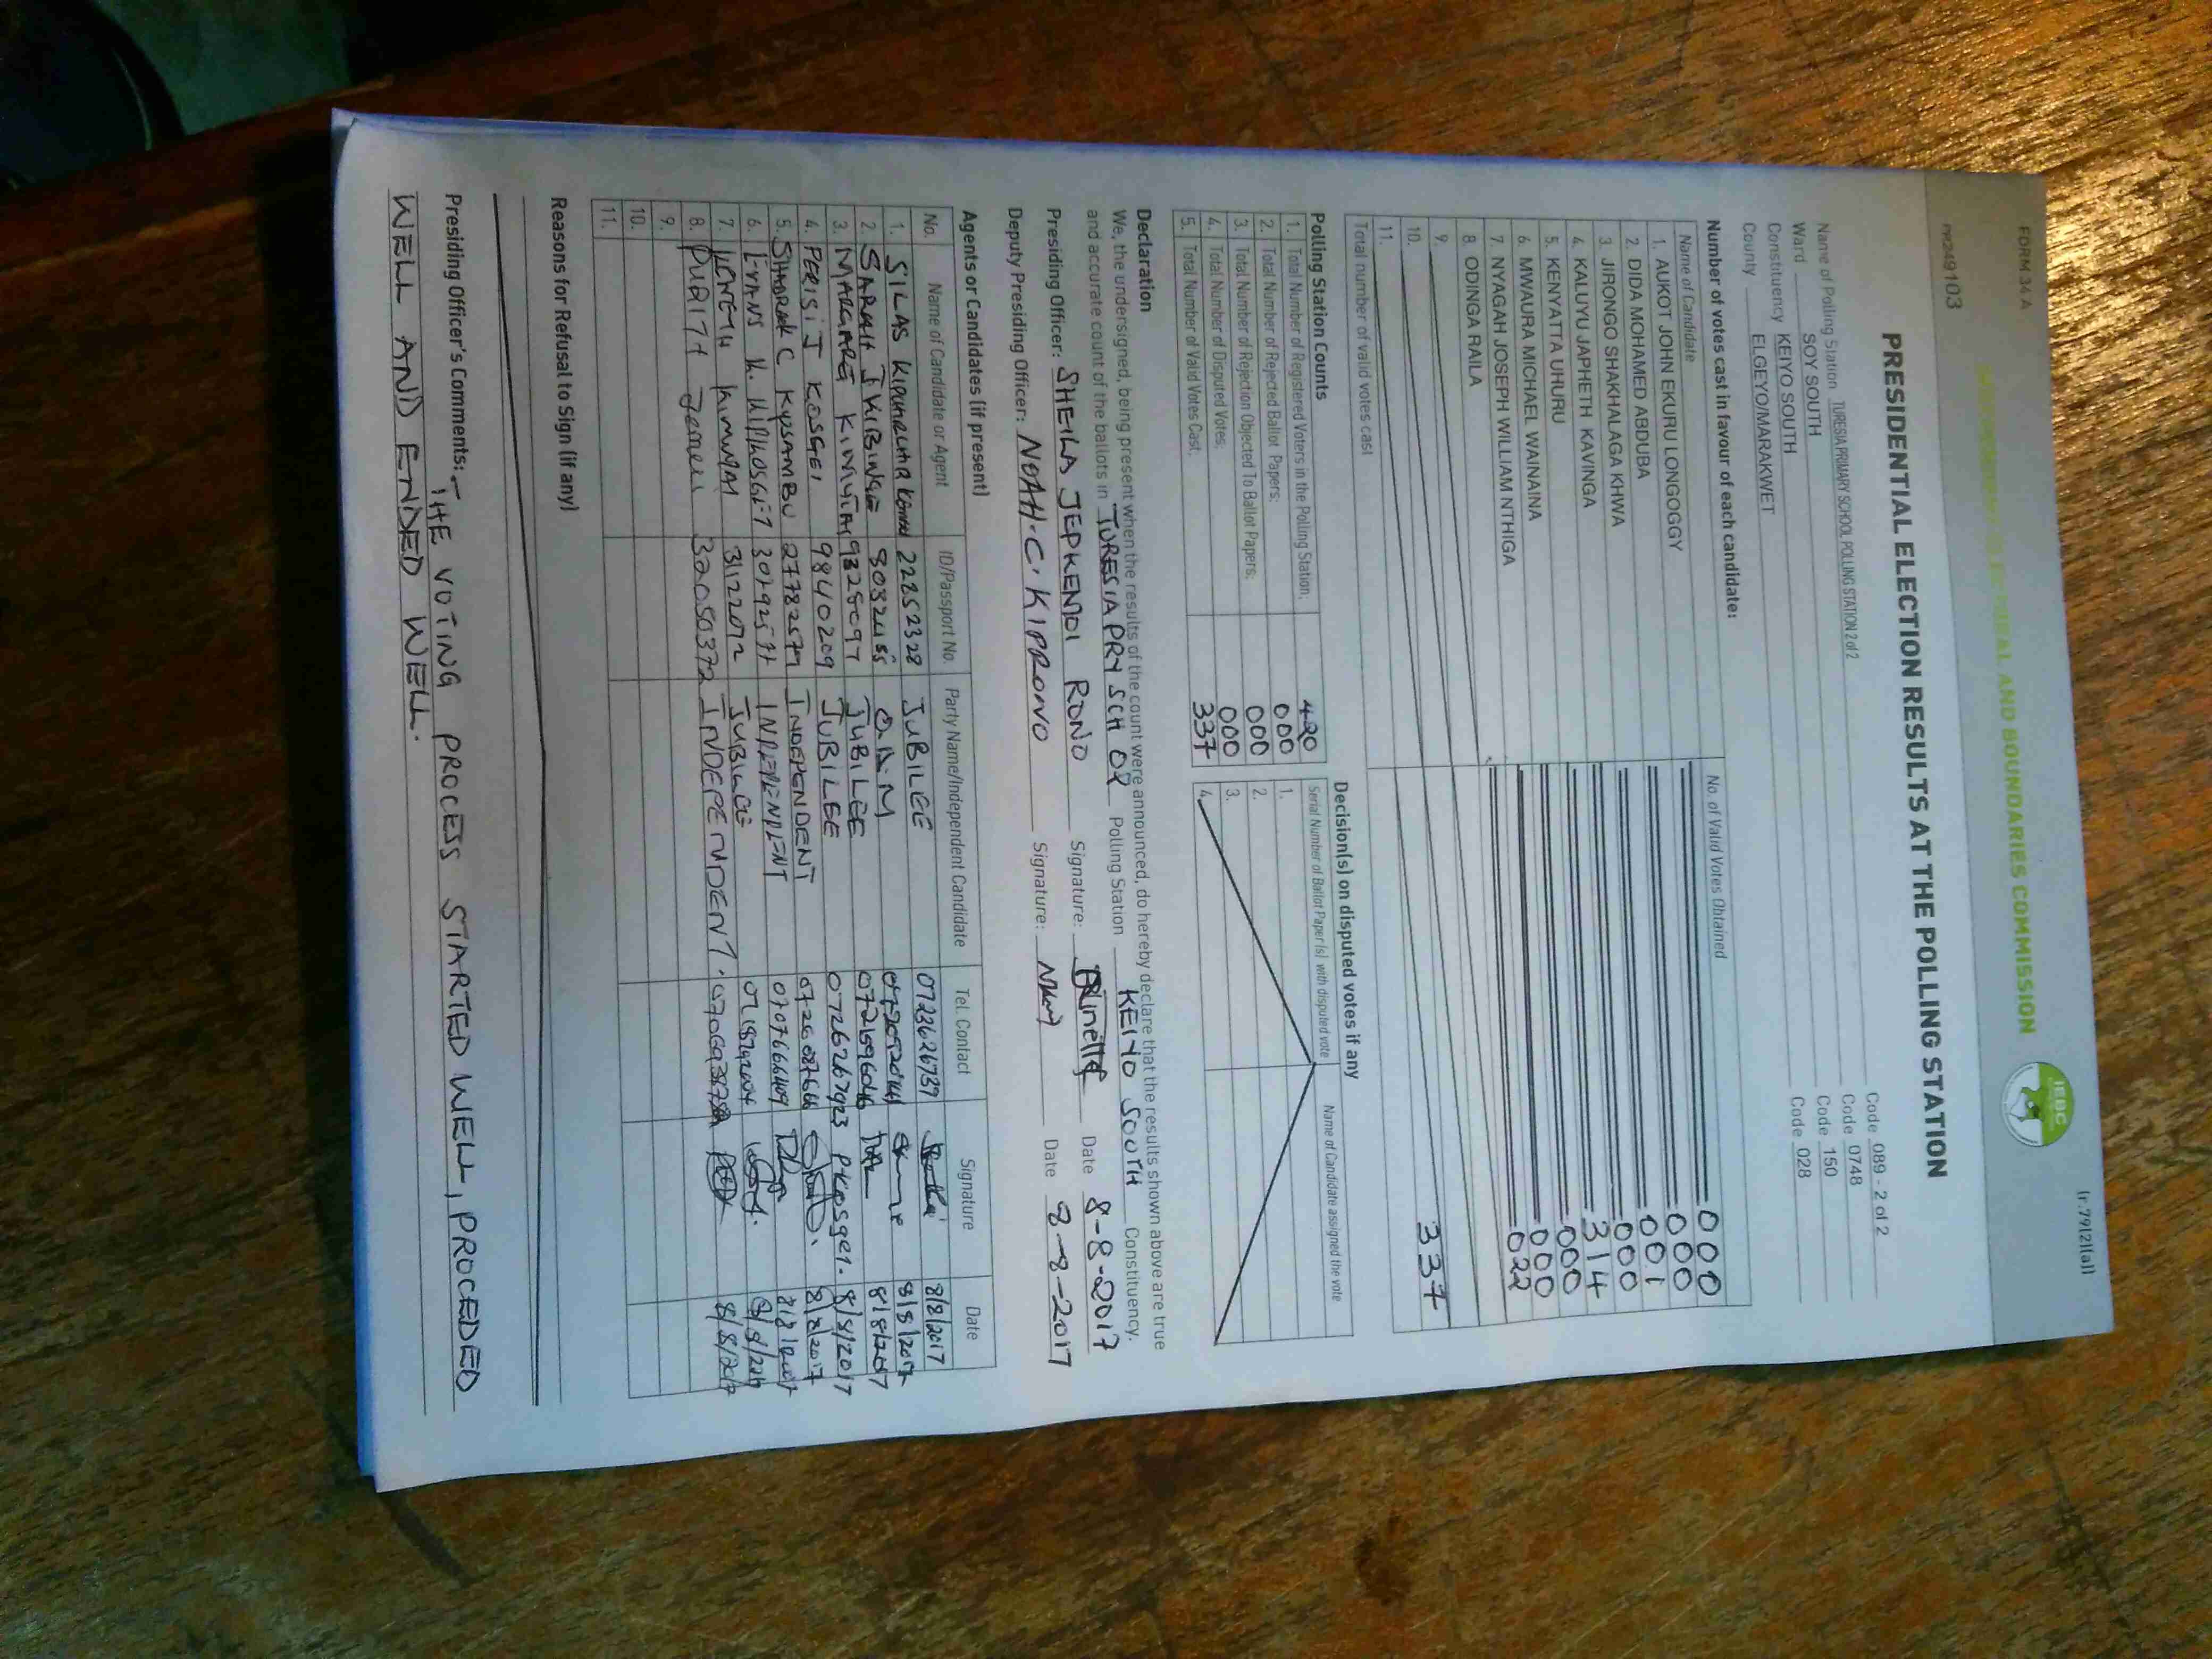 FORM 34 A
(r.792)(a))
INDEPENDENT ELECTORAL AND BOUNDARIES COMMISSION
IEBC
PRESIDENTIAL ELECTION RESULTS AT THE POLLING STATION
Name of Polling Station TURESIA PRIMARY SCHOOL POLLING STATION 2 of 2 Code 089 - 2 of 2
Ward SOY SOUTH Code 0748
Constituency KEIYO SOUTH Code 150
County ELGEYO/MARAKWET Code 028
Number of votes cast in favour of each candidate:
Name of Candidate No. of Valid Votes Obtained
1. AUKOT JOHN EKURU LONGOGGY 000
2. DIDA MOHAMED ABDUBA 000
3. JIRONGO SHAKHALAGA KHWA 001
4. KALUYU JAPHETH KAVINGA 000
5. KENYATTA UHURU 314
6. MWAURA MICHAEL WAINAINA 000
7. NYAGAH JOSEPH WILLIAM NTHIGA 000
8. ODINGA RAILA 022
9.
10.
11.
Total number of valid votes cast 337
Polling Station Counts
1. Total Number of Registered Voters in the Polling Station; 420
2. Total Number of Rejected Ballot Papers; 000
3. Total Number of Rejection Objected To Ballot Papers; 000
4. Total Number of Disputed Votes; 000
5. Total Number of Valid Votes Cast; 337
Decision(s) on disputed votes if any
Serial Number of Ballot Paper(s) with disputed vote Name of Candidate assigned the vote
1.
2.
3.
4.
Declaration
We, the undersigned, being present when the results of the count were announced, do hereby declare that the results shown above are true
and accurate count of the ballots in TURESIA PRY SCH 02 Polling Station KEIYO SOUTH Constituency.
Presiding Officer: SHEILA JEPKENDI RONO Signature: Date 8-8-2017
Deputy Presiding Officer: NOAH.C.KIPRONO Signature: Date 8-8-2017
Agents or Candidates (if present)
No. Name of Candidate or Agent ID/Passport No. Party Name/Independent Candidate Tel. Contact Signature Date
1. SILAS 22852328 JUBILEE 0723626739 8/8/2017
2. SARAH J KIBINGE O.D.M 8/8/2017
3. MARGARET 9325097 JUBILEE 8/8/2017
4. PERIS J KOSGEI 9840209 JUBILEE 0726267923 PKosgei. 8/8/2017
5. SHADRACK C 27782579 INDEPENDENT 8/8/2017
6. EVANS K. INDEPENDENT 0707666409
7. 31122072 JUBILEE 8/8/2017
8. PURITY 32050372 INDEPENDENT. 8/8/2017
9.
10.
11.
Reasons for Refusal to Sign (if any)
Presiding Officer's Comments:- THE VOTING PROCESS STARTED WELL, PROCEDED
WELL AND ENDED WELL.